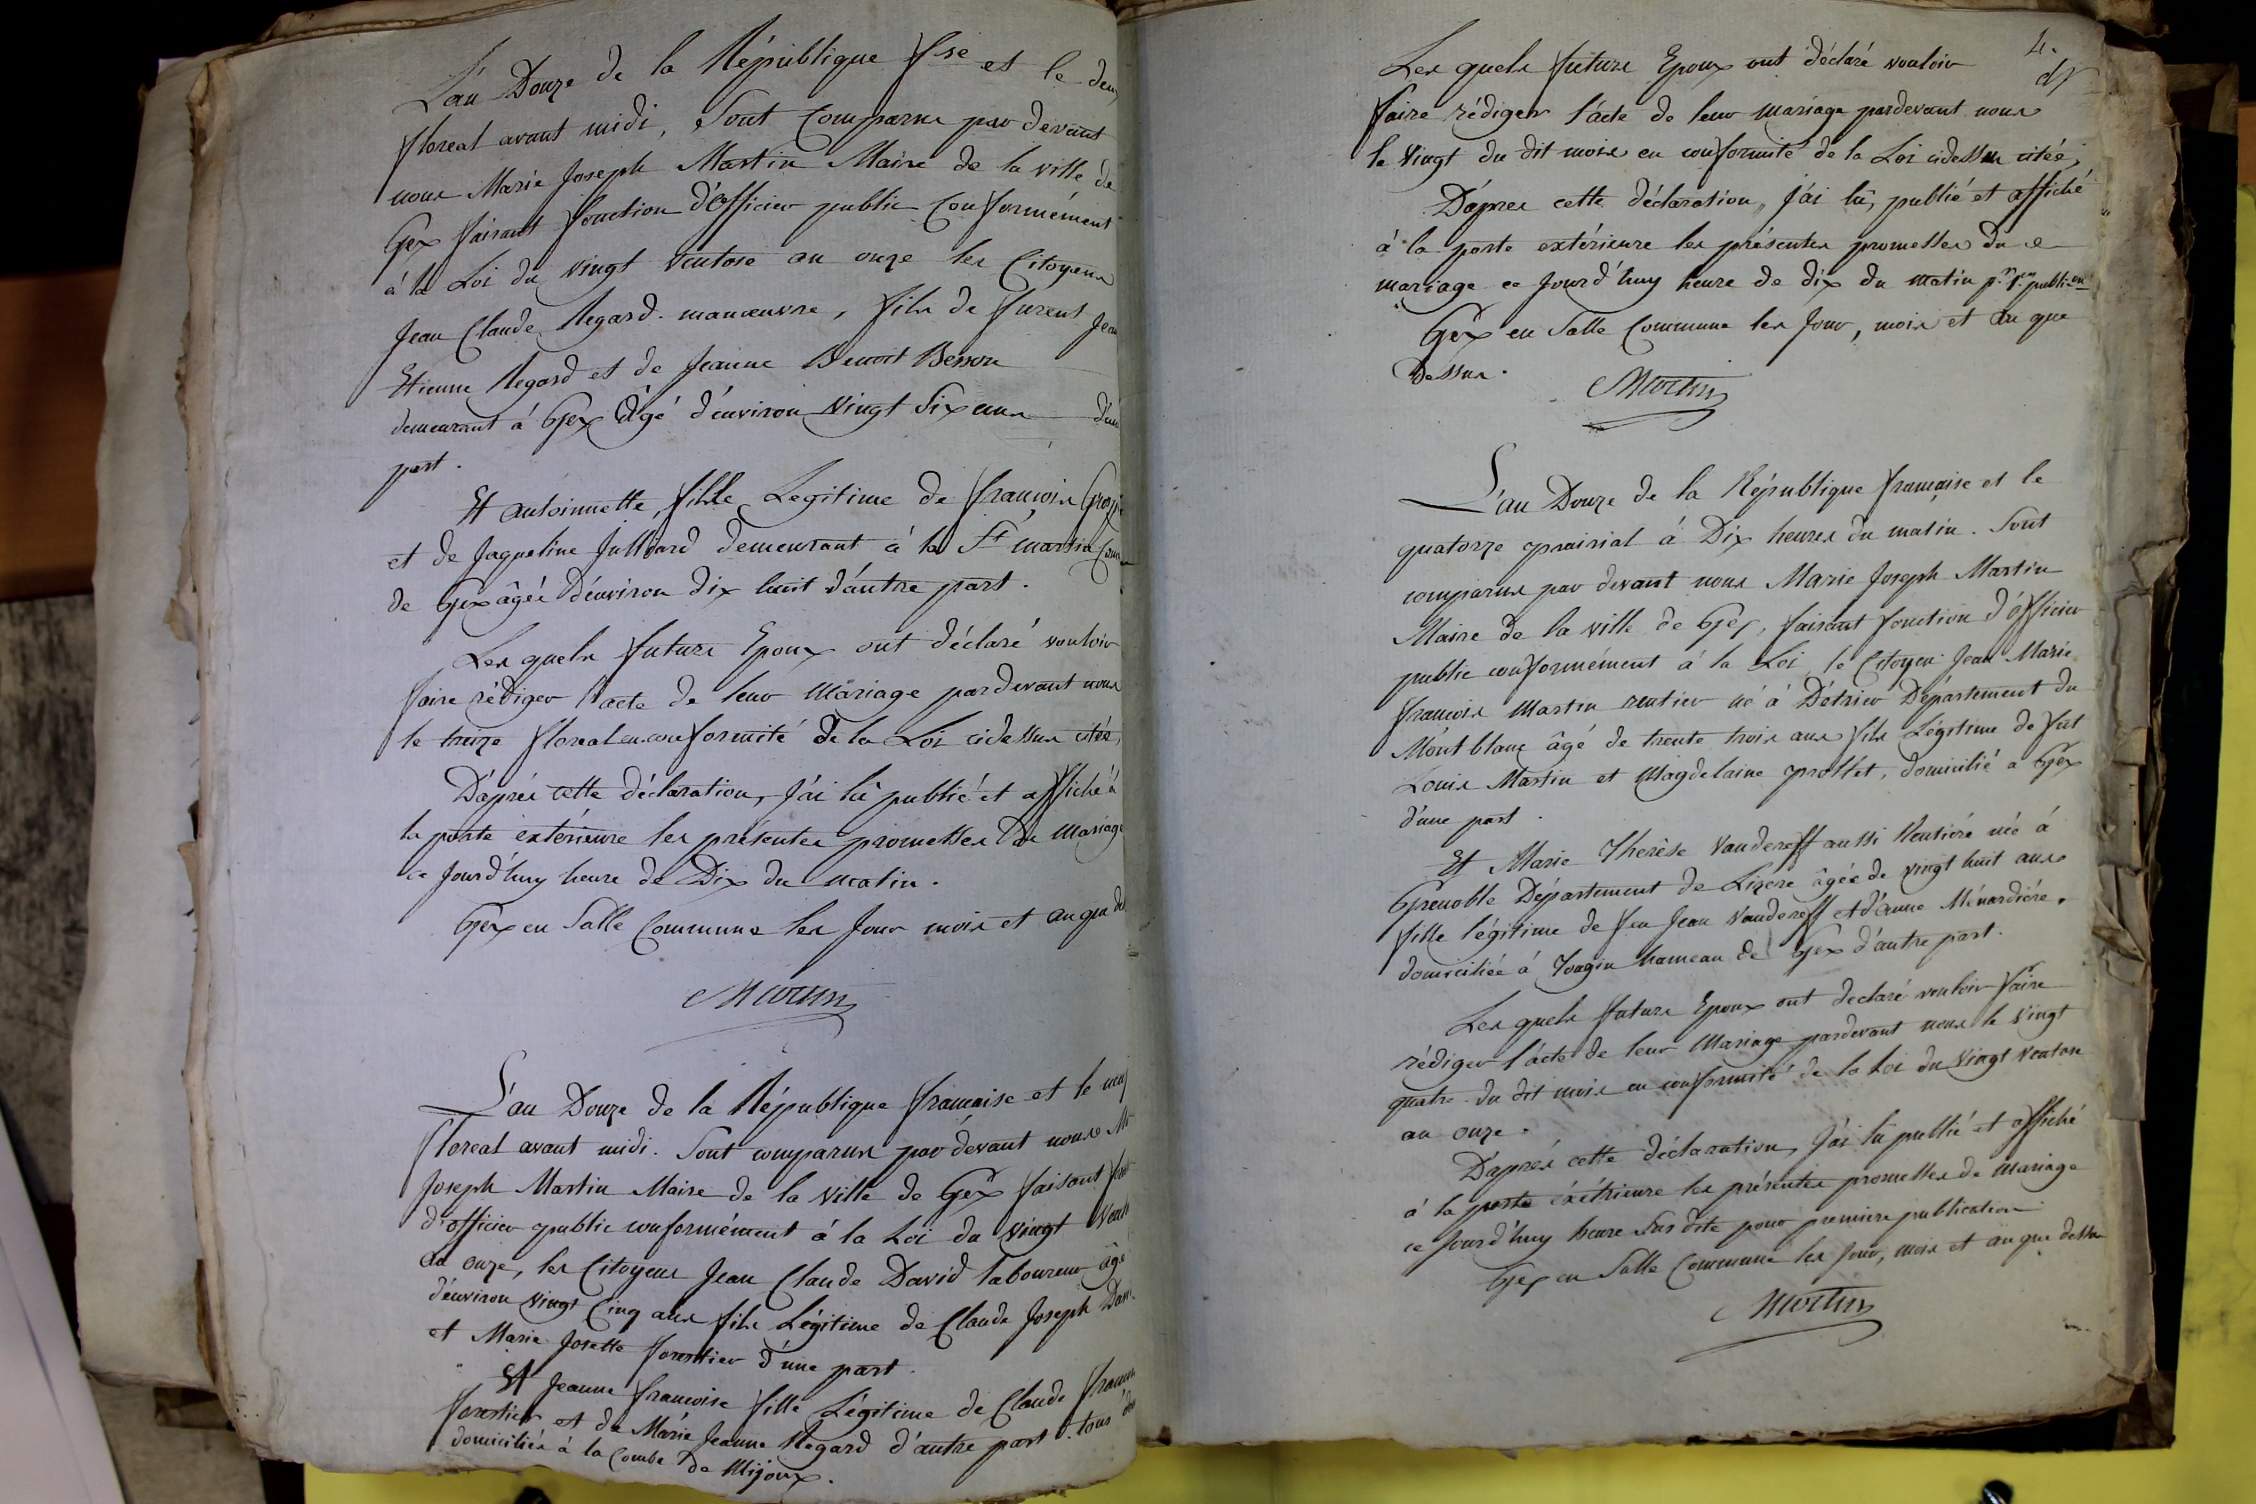 L'an Douze de la République fse et le deux
floreal avant midi, Sont Comparus par devant
nous Marie Joseph Martin Maire de la ville de
Gex faisant fonction d'officier public Conformément
à la Loi du vingt Ventose an onze les Citoyens
Jean Claude Regard manœuvre, fils de furent Jean
Etienne Regard et de Jeanne Benoit Besson
demeurant à Gex Agé d'environ Vingt Six ans d'une
part.
Et antoinette, fille Legitime de francois
et de Jaqueline Julliard demeurant à la St martin
de Gex âgée d'environ dix huit d'autre part.
Les quels futurs Epoux ont déclaré vouloir
faire rédiger l'acte de leur Mariage pardevant nous
le treize floreal en conformité de la Loi cidessus citée,
D'aprés cette déclaration, J'ai lû publié et affiché à
la porte extérieure les présentes promesses De Mariage
ce Jourd'huy heure de Dix du matin.
Gex en Salle Commune les Jour mois et an que
Martin
L'an Douze de la République francaise et le neuf
floreal avant midi. Sont comparus par dévant nous
Joseph Martin Maire de la Ville de Gex faisant
d'officier public conformément à la Loi du vingt
an onze, les Citoyens Jean Claude David laboureur âgé
d'environ vingt Cinq ans fils Légitime de Claude Joseph
et Marie Josette forestier d'une part.
Et Jeanne francoise fille Légitime de Claude
forestier et de Marie Jeanne Regard d'autre part tous
domiciliés à la Combe de Mijoux.
4.
Les quels futurs Epoux ont déclaré vouloir
faire rédiger l'acte de leur mariage pardevant nous
le Vingt du dit mois en conformité de la Loi cidessus citée,
D'aprés cette déclaration, J'ai lû, publié et affiché
à la porte extérieure les présentes promesses de
mariage ce Jourd'huy heure de dix du matin pr 1ere publi.on
Gex en Salle Commune les Jour, mois et an que
Dessus.
Martin
L'an Douze de la République francaise et le
quatorze prairial à Dix heures du matin. Sont
comparus par devant nous Marie Joseph Martin
Maire de la ville de Gex, faisant fonction d'officier
public conformément à la Loi, le Citoyen Jean Marie
francois Martin rentier né à Détrier Département du
Montblanc âgé de trente trois ans fils Légitime de fut
Louis Martin et Magdelaine prollet, domicilié a Gex
d'une part.
Et Marie Therèse Vandereff aussi Rentiére née à
Grenoble Département de Lizere âgée de vingt huit ans
fille légitime de feu Jean Vandereff et d'anne Ménardiére.
domiciliée à Tougin hameau de Gex d'autre part.
Les quels futurs Epoux ont declaré vouloir faire
rédiger l'acte de leur Mariage pardevant nous le Vingt
quatre du dit mois en conformité de la Loi du Vingt Ventose
an onze.
D'aprés cette déclaration, J'ai lû publié et affiché
à la porte éxétrieure les présentes promesses de Mariage
ce Jourd'huy heure Sus dite pour premiere publication
Gex en Salle Commune les Jour, mois et an que dessus
Martin